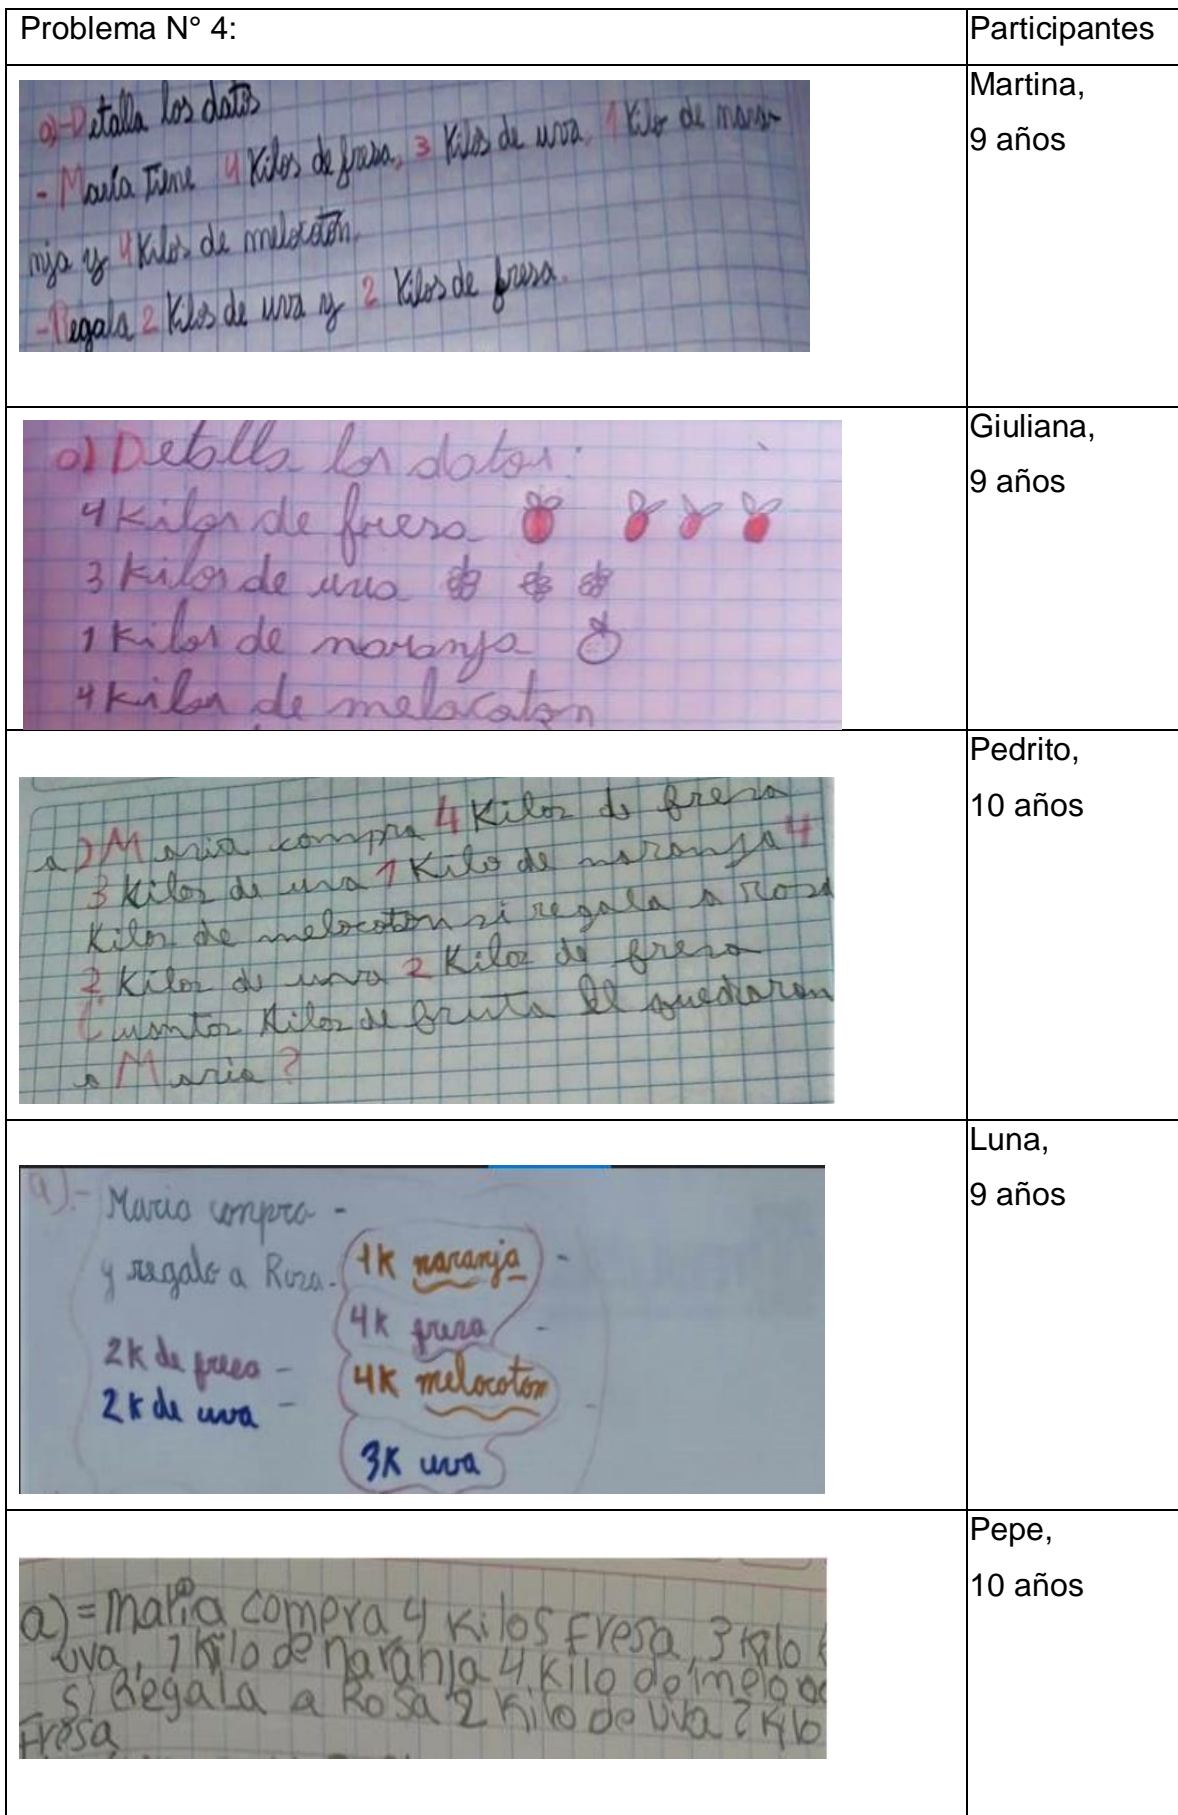 Problema N° 4:
Participantes
a)-Detalla los datos
- María Tiene 4 Kilos de fresa, 3 Kilos de uva, 1 Kilo de naran-
nja y 4 Kilos de melocotón.
-Regala 2 Kilos de uva y 2 Kilos de fresa.
Martina,
9 años
a) Detalla los datos:
4 Kilos de fresa
3 Kilos de uva
1 Kilos de naranja
4 Kilos de melocaton
Giuliana,
9 años
a) Maria compra 4 Kilos de fresa
3 Kilos de uva 1 Kilo de naranja 4
Kilos de melocoton si regala a rosa
2 Kilos de uva 2 Kilos de fresa
Cuantos Kilos de fruta le quedaron
a Maria?
Pedrito,
10 años
a).- Maria compra -
y regalo a Rosa.
2K de fresa -
2K de uva -
1K naranja -
4K fresa -
4K melocoton -
3K uva
Luna,
9 años
a) = maria compra 4 Kilos Fresa, 3 kilo
uva, 1 kilo de naranja 4 kilo de meloco
si Regala a Rosa 2 kilo de uva 2 kilo
Fresa
Pepe,
10 años